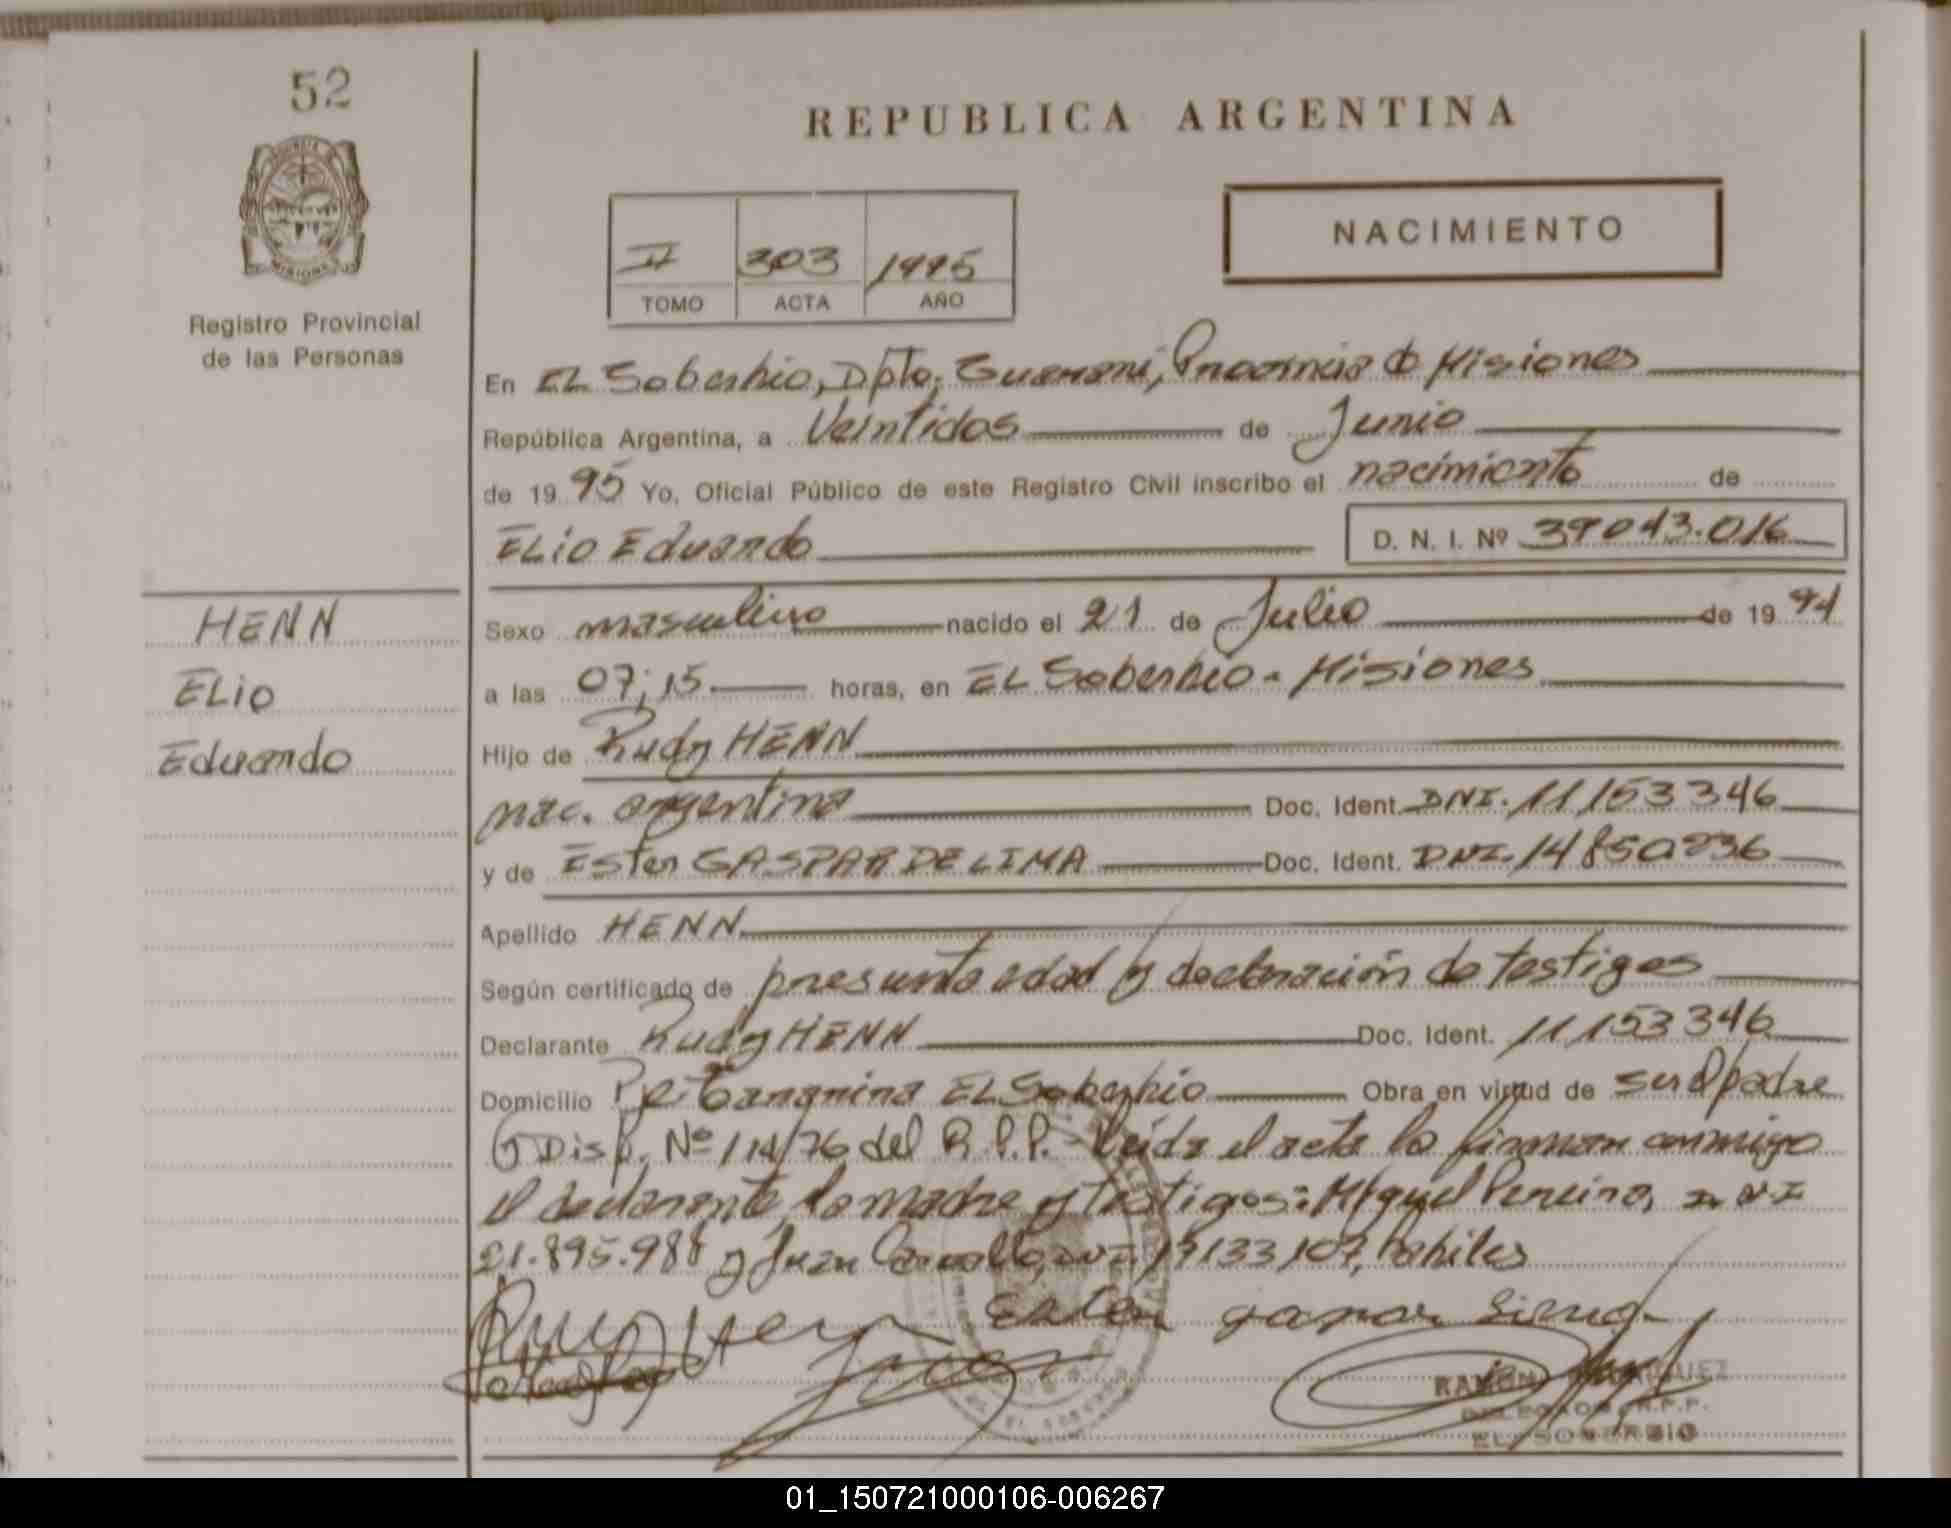 52
REPUBLICA ARGENTINA
NACIMIENTO
II 303 1995
TOMO ACTA AÑO
Registro Provincial
de las Personas
En EL Soberbio, Dpto. Guaraní, Provincia de Misiones
República Argentina, a Veintidos de Junio
de 19 95 Yo, Oficial Público de este Registro Civil inscribo el nacimiento de
ELio Eduardo D. N. I. Nº 39043.016
HENN
ELio
Eduardo
Sexo masculino nacido el 21 de Julio de 19 94
a las 07;15 horas, en EL Soberbio - Misiones
Hijo de Rudy HENN
nac. argentina Doc. Ident. DNI. 11153346
y de Ester GASPAR DE LIMA Doc. Ident. DNI. 14850836
Apellido HENN
Según certificado de presunta edad y declaración de testigos
Declarante Rudy HENN Doc. Ident. 11153346
Domicilio EL Soberbio Obra en virtud de ser el padre
y Disp. Nº 114/76 del R.P.P. - Leida el acta la firman conmigo
el declarante, la madre y testigos: Miguel Pereira, DNI
21.895.988 y Juan DNI. 17133107, habiles
Ester gaspar Lima
RAMON
DELEGADO R.P.P.
EL SOBERBIO
01_150721000106-006267